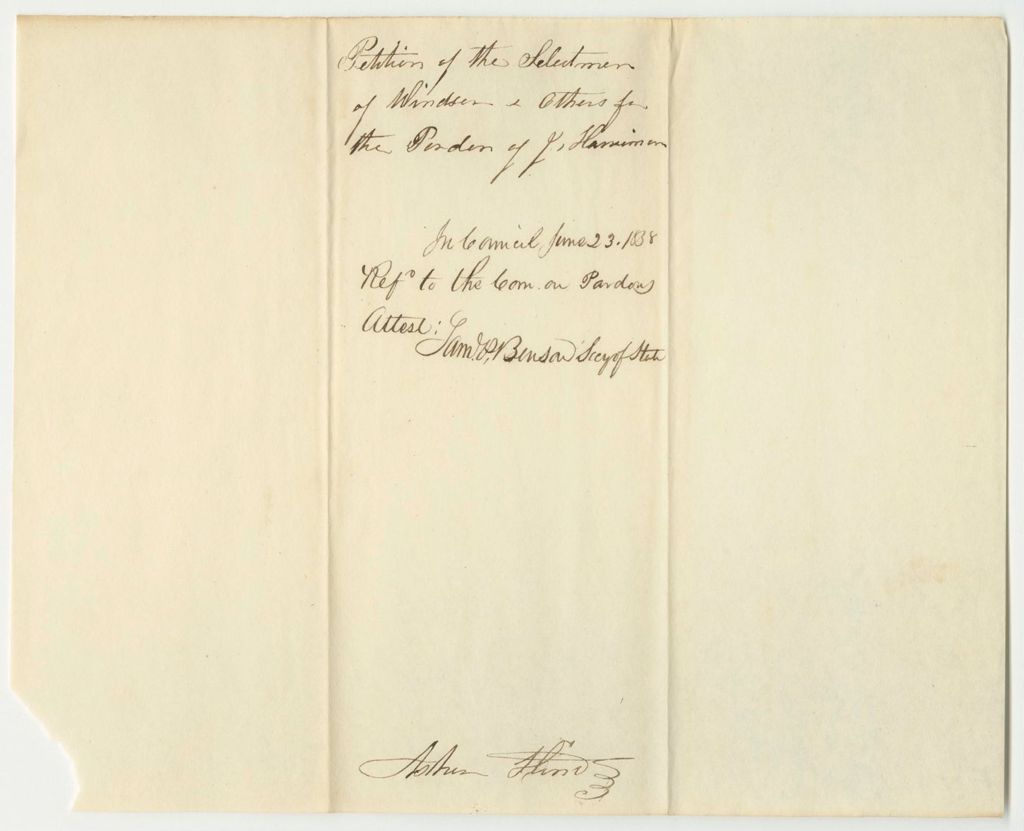 Petition of the Selectmen
of Windsor & others for
the Pardon of J. Harriman
In Council, June 23. 1838
Refd to the Com. on Pardons
Attest:
Saml. P. Benson Secy of State